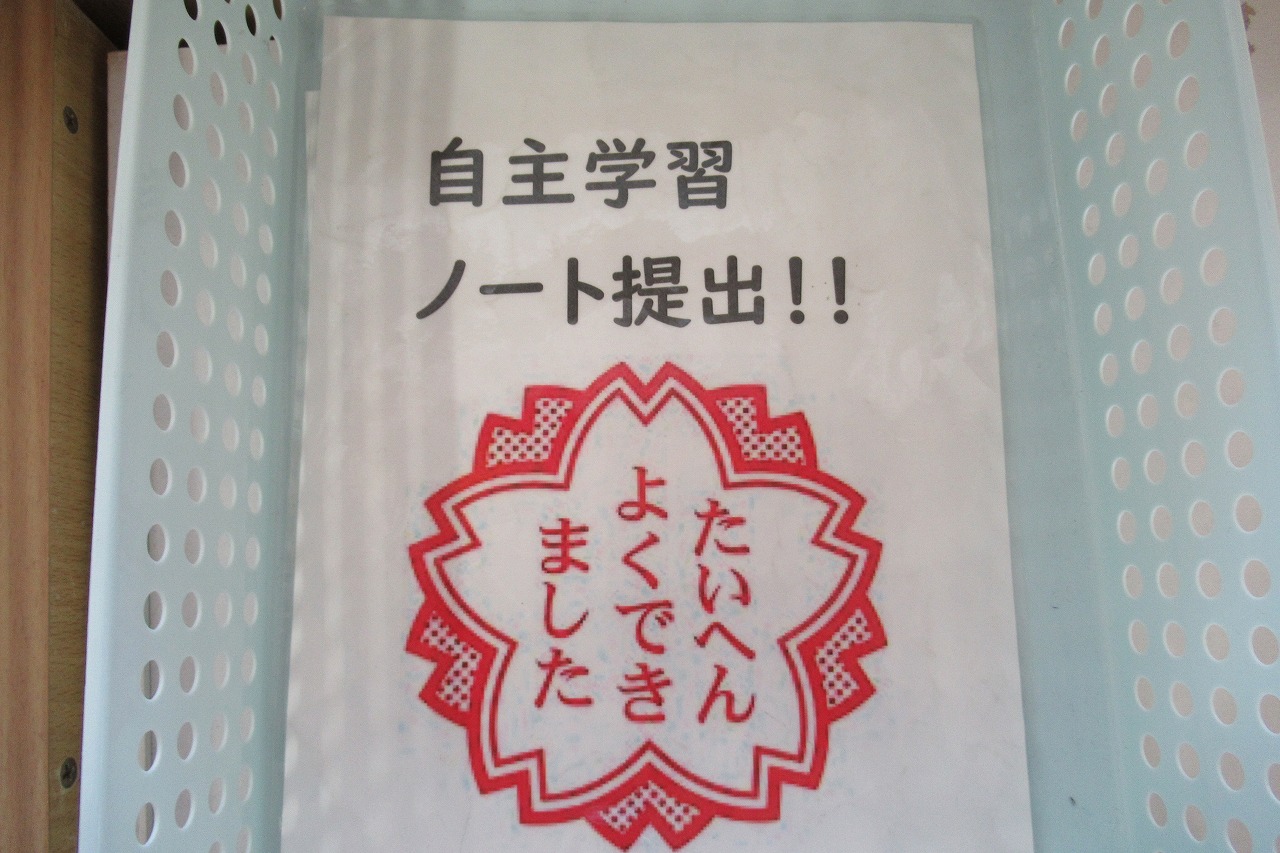 自主学習
ノート提出!!
たいへん
よくでき
ました